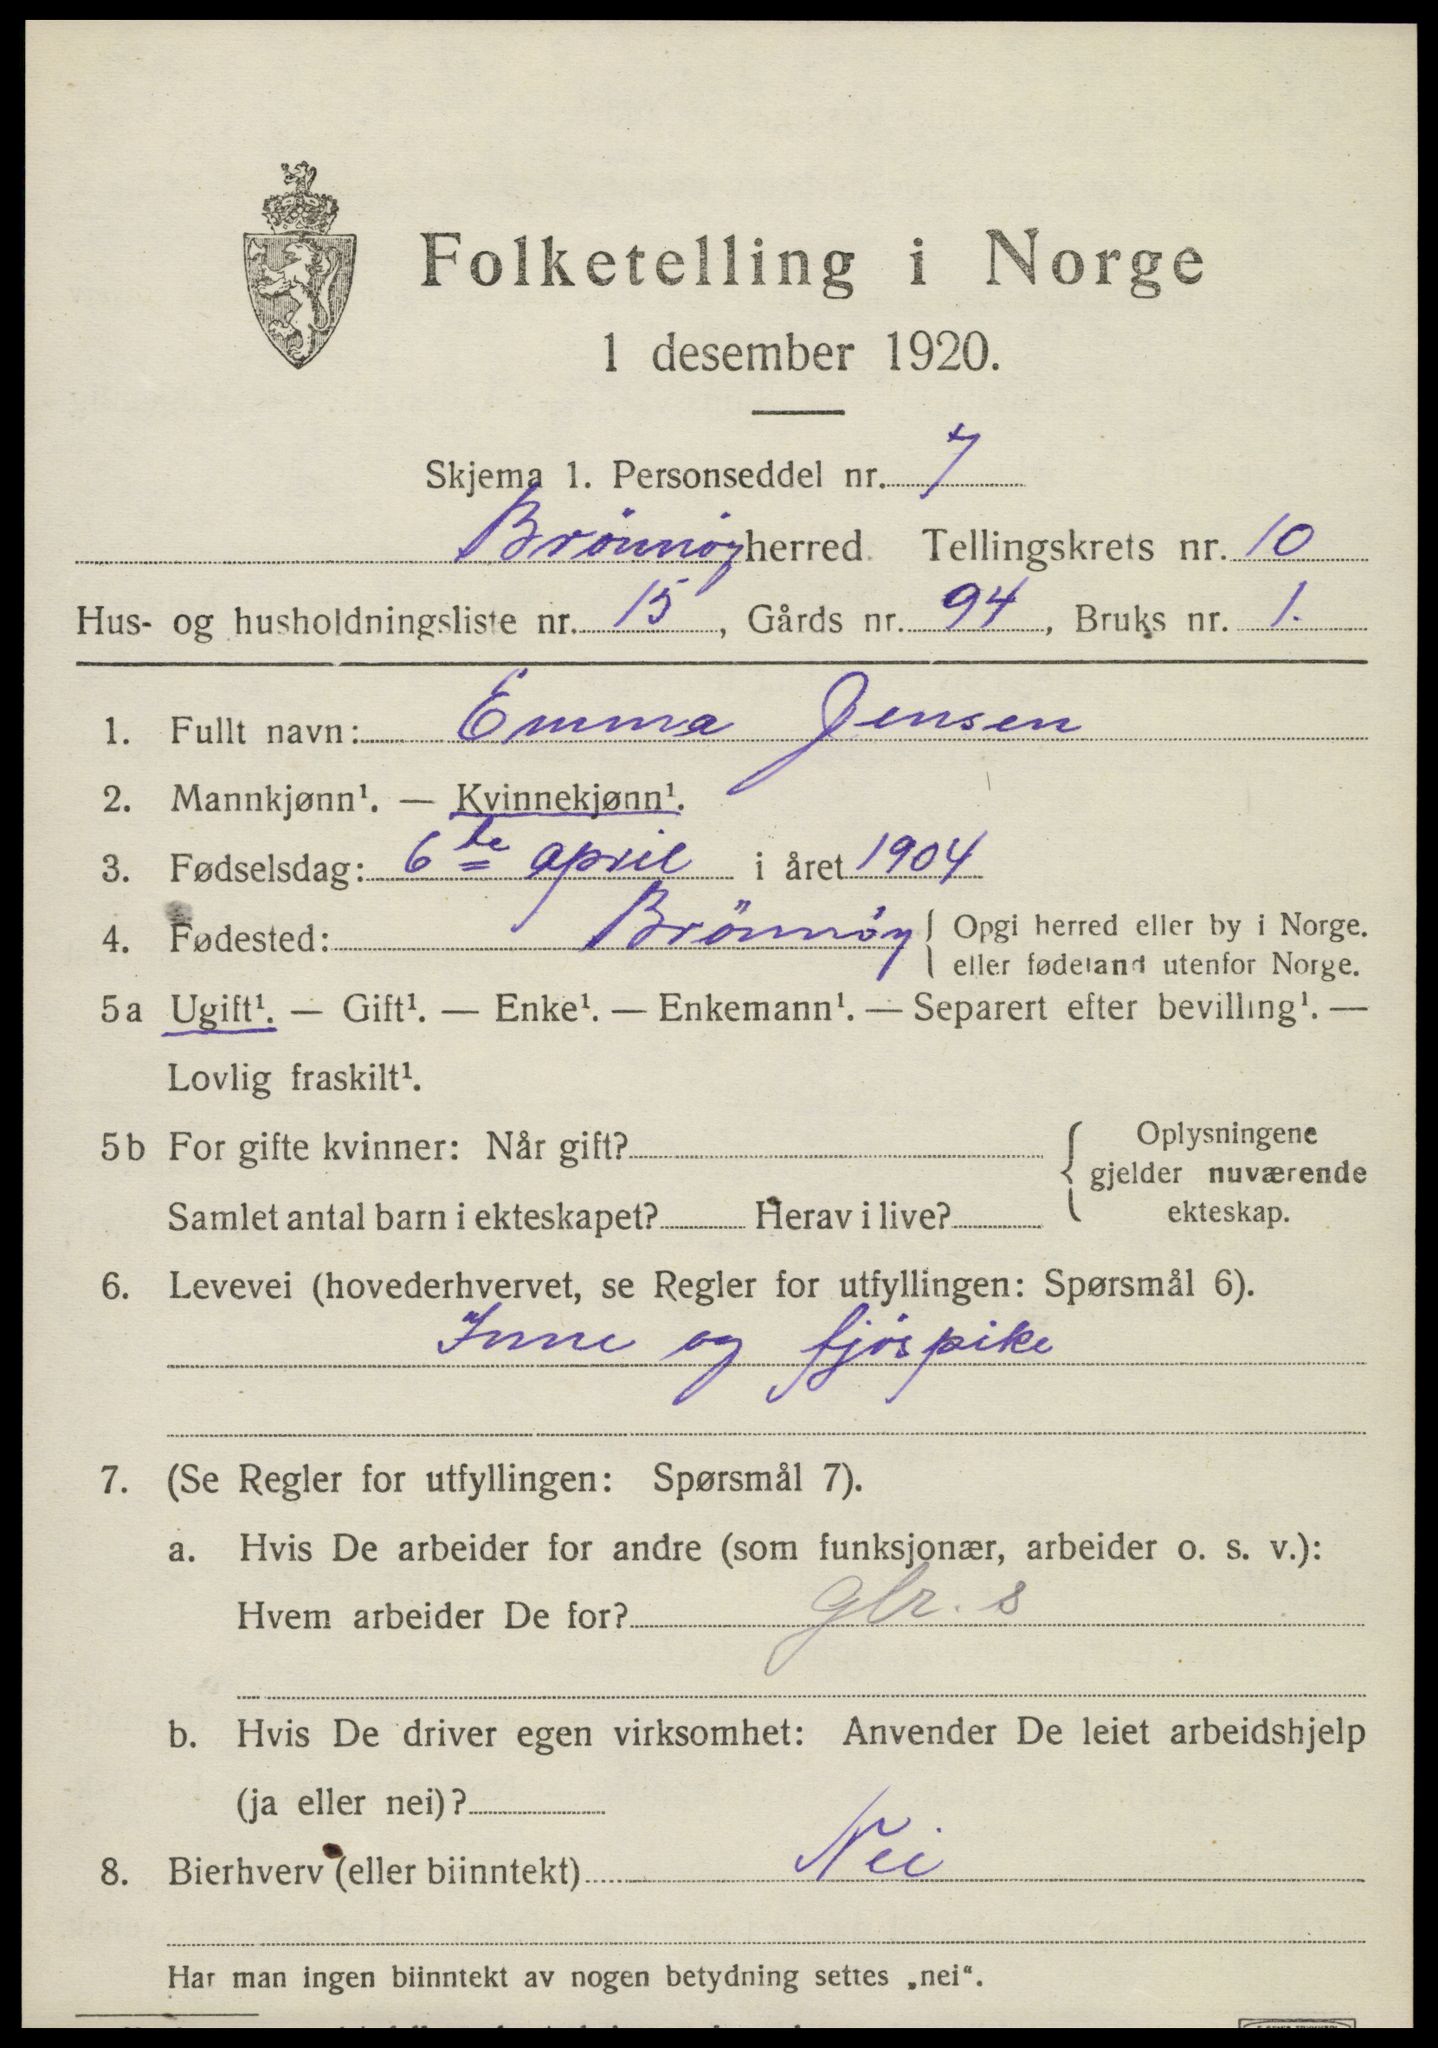 Folketelling i Norge
1 desember 1920.
Skjema 1. Personseddel nr. 7
Brönnöy herred. Tellingskrets nr. 10
Hus- og husholdningsliste nr. 15, Gårds nr. 94, Bruks nr. 1.
1. Fullt navn: Emma Jensen
2. Mannkjønn¹. — Kvinnekjønn¹.
3. Fødselsdag: 6te april i året 1904
4. Fødested: Brönnöy { Opgi herred eller by i Norge.
eller fødeland utenfor Norge.
5a Ugift¹. — Gift¹. — Enke¹. — Enkemann¹. — Separert efter bevilling¹. —
Lovlig fraskilt¹.
5b For gifte kvinner: Når gift? { Oplysningene
gjelder nuværende
Samlet antal barn i ekteskapet? Herav i live? ekteskap.
6. Levevei (hovederhvervet, se Regler for utfyllingen: Spørsmål 6).
Inne og fjöspike
7. (Se Regler for utfyllingen: Spørsmål 7).
a. Hvis De arbeider for andre (som funksjonær, arbeider o. s. v.):
Hvem arbeider De for? gbr. s
b. Hvis De driver egen virksomhet: Anvender De leiet arbeidshjelp
(ja eller nei)?
8. Bierhverv (eller biinntekt) Nei
Har man ingen biinntekt av nogen betydning settes „nei“.